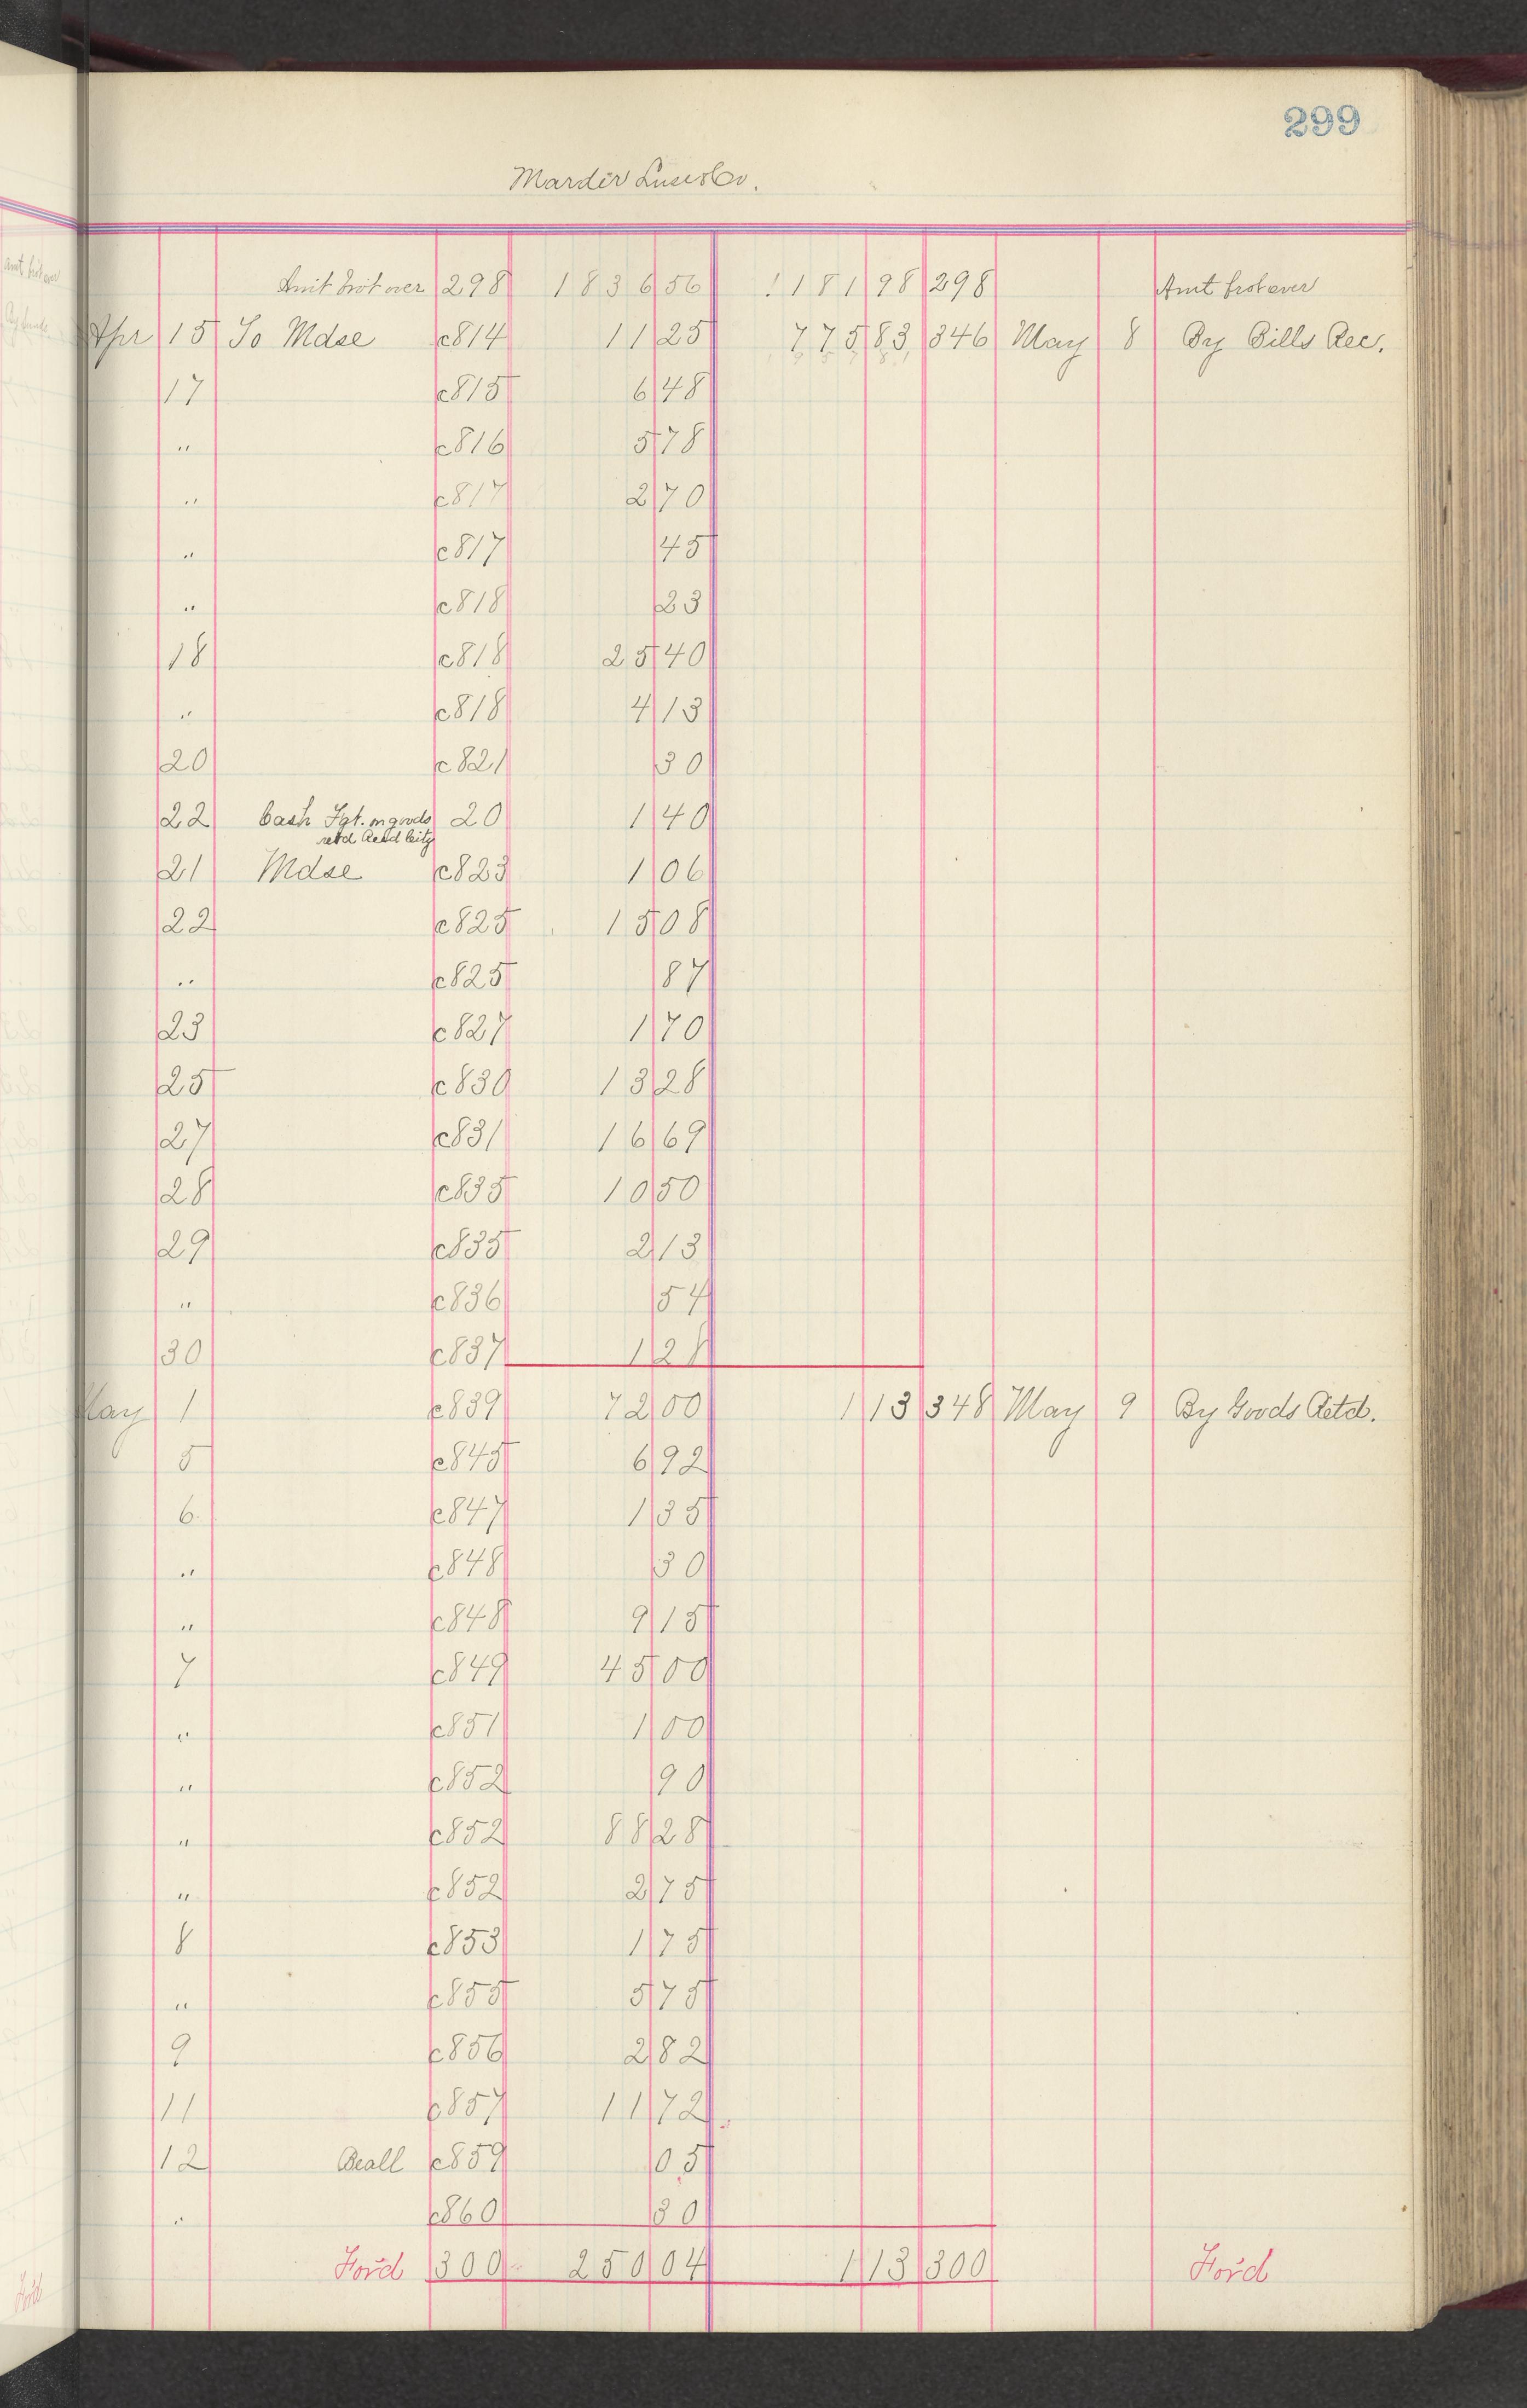 299
Marder Luse & Co.
Amt brot over 298 1836 56 1181 98 298 Amt brot over
Apr 15 To Mdse c814 11 25 775 83 346 May 8 By Bills Rec.
17 c815 6 48
" c816 5 78
" c817 2 70
" c817 45
" c818 23
18 c818 25 40
" c818 4 13
20 c821 30
22 Cash Fgt. on goods 20 1 40
retd
21 Mdse c823 1 06
22 c825 15 08
" c825 87
23 c827 1 70
25 c830 13 28
27 c831 16 69
28 c835 10 50
29 c835 2 13
" c836 54
30 c837 1 28
May 1 c839 72 00 1 13 348 May 9 By Goods Retd.
5 c845 6 92
6 c847 1 35
" c848 30
" c848 9 15
7 c849 45 00
" c851 1 00
" c852 90
" c852 88 28
" c852 2 75
8 c853 1 75
" c855 5 75
9 c856 2 82
11 c857 11 72
12 Beall c859 05
" c860 30
For'd 300 250 04 1 13 300 For'd